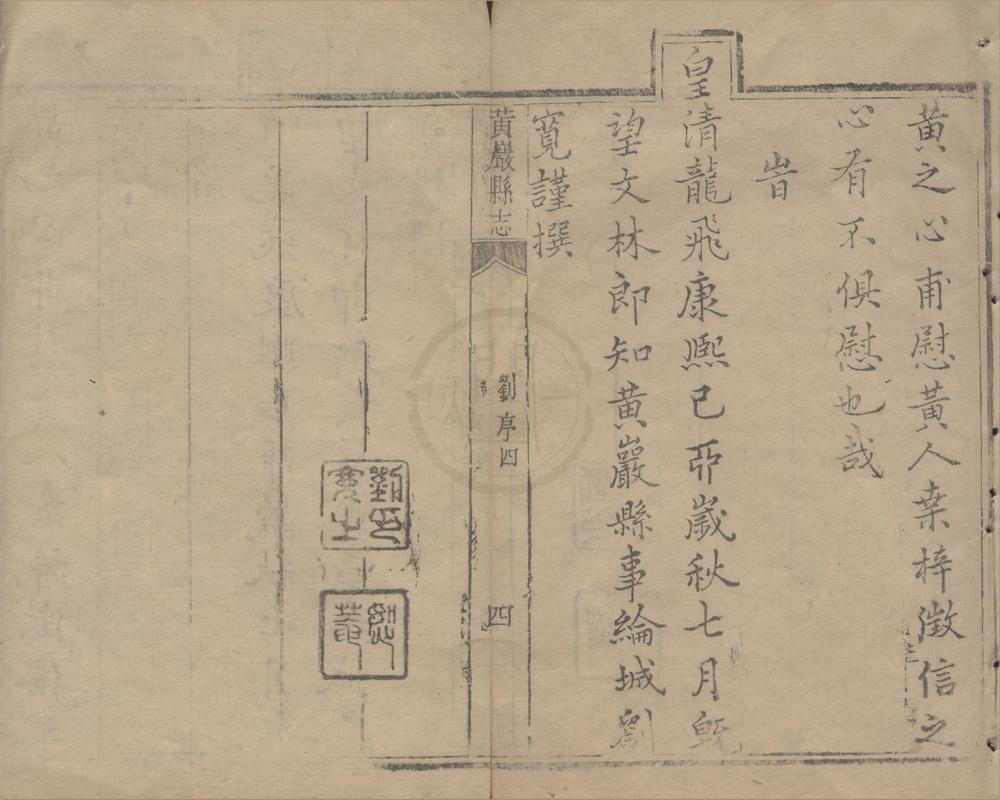 黄之心甫慰黄人桒梓徵信之
心有不俱慰也哉
旹
皇清龍飛康熈己丣歲秋七月旣
望文林郎知黄巖縣事綸城劉
寛謹撰
黄巖縣志
劉序四
四